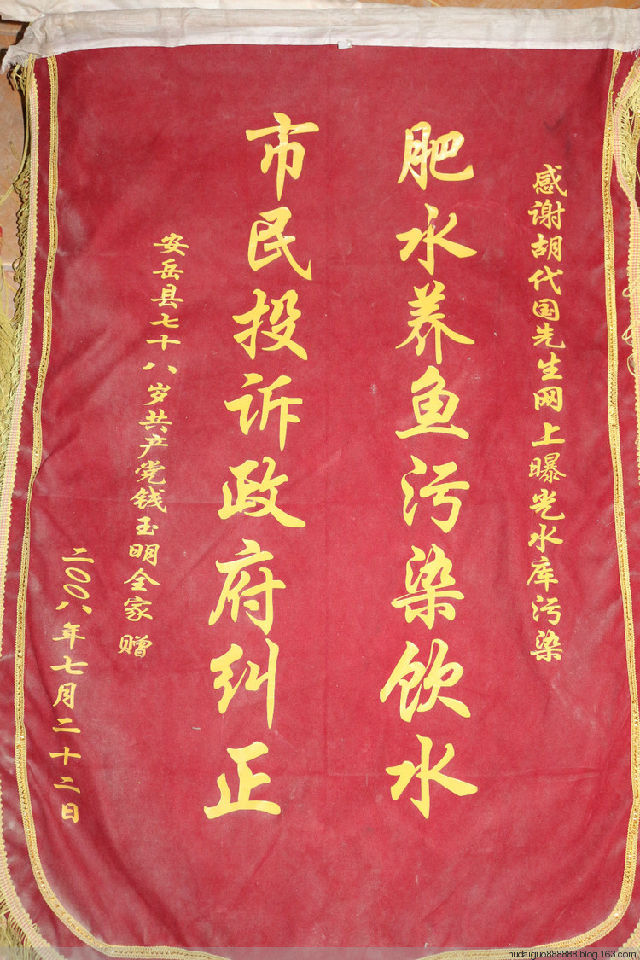 感谢胡代国先生网上曝光水库污染
肥水养鱼污染饮水
市民投诉政府纠正
安岳县七十八岁共产党钱玉明全家 赠
二〇〇八年七月二十二日
hudaiguo888888.blog.163.com